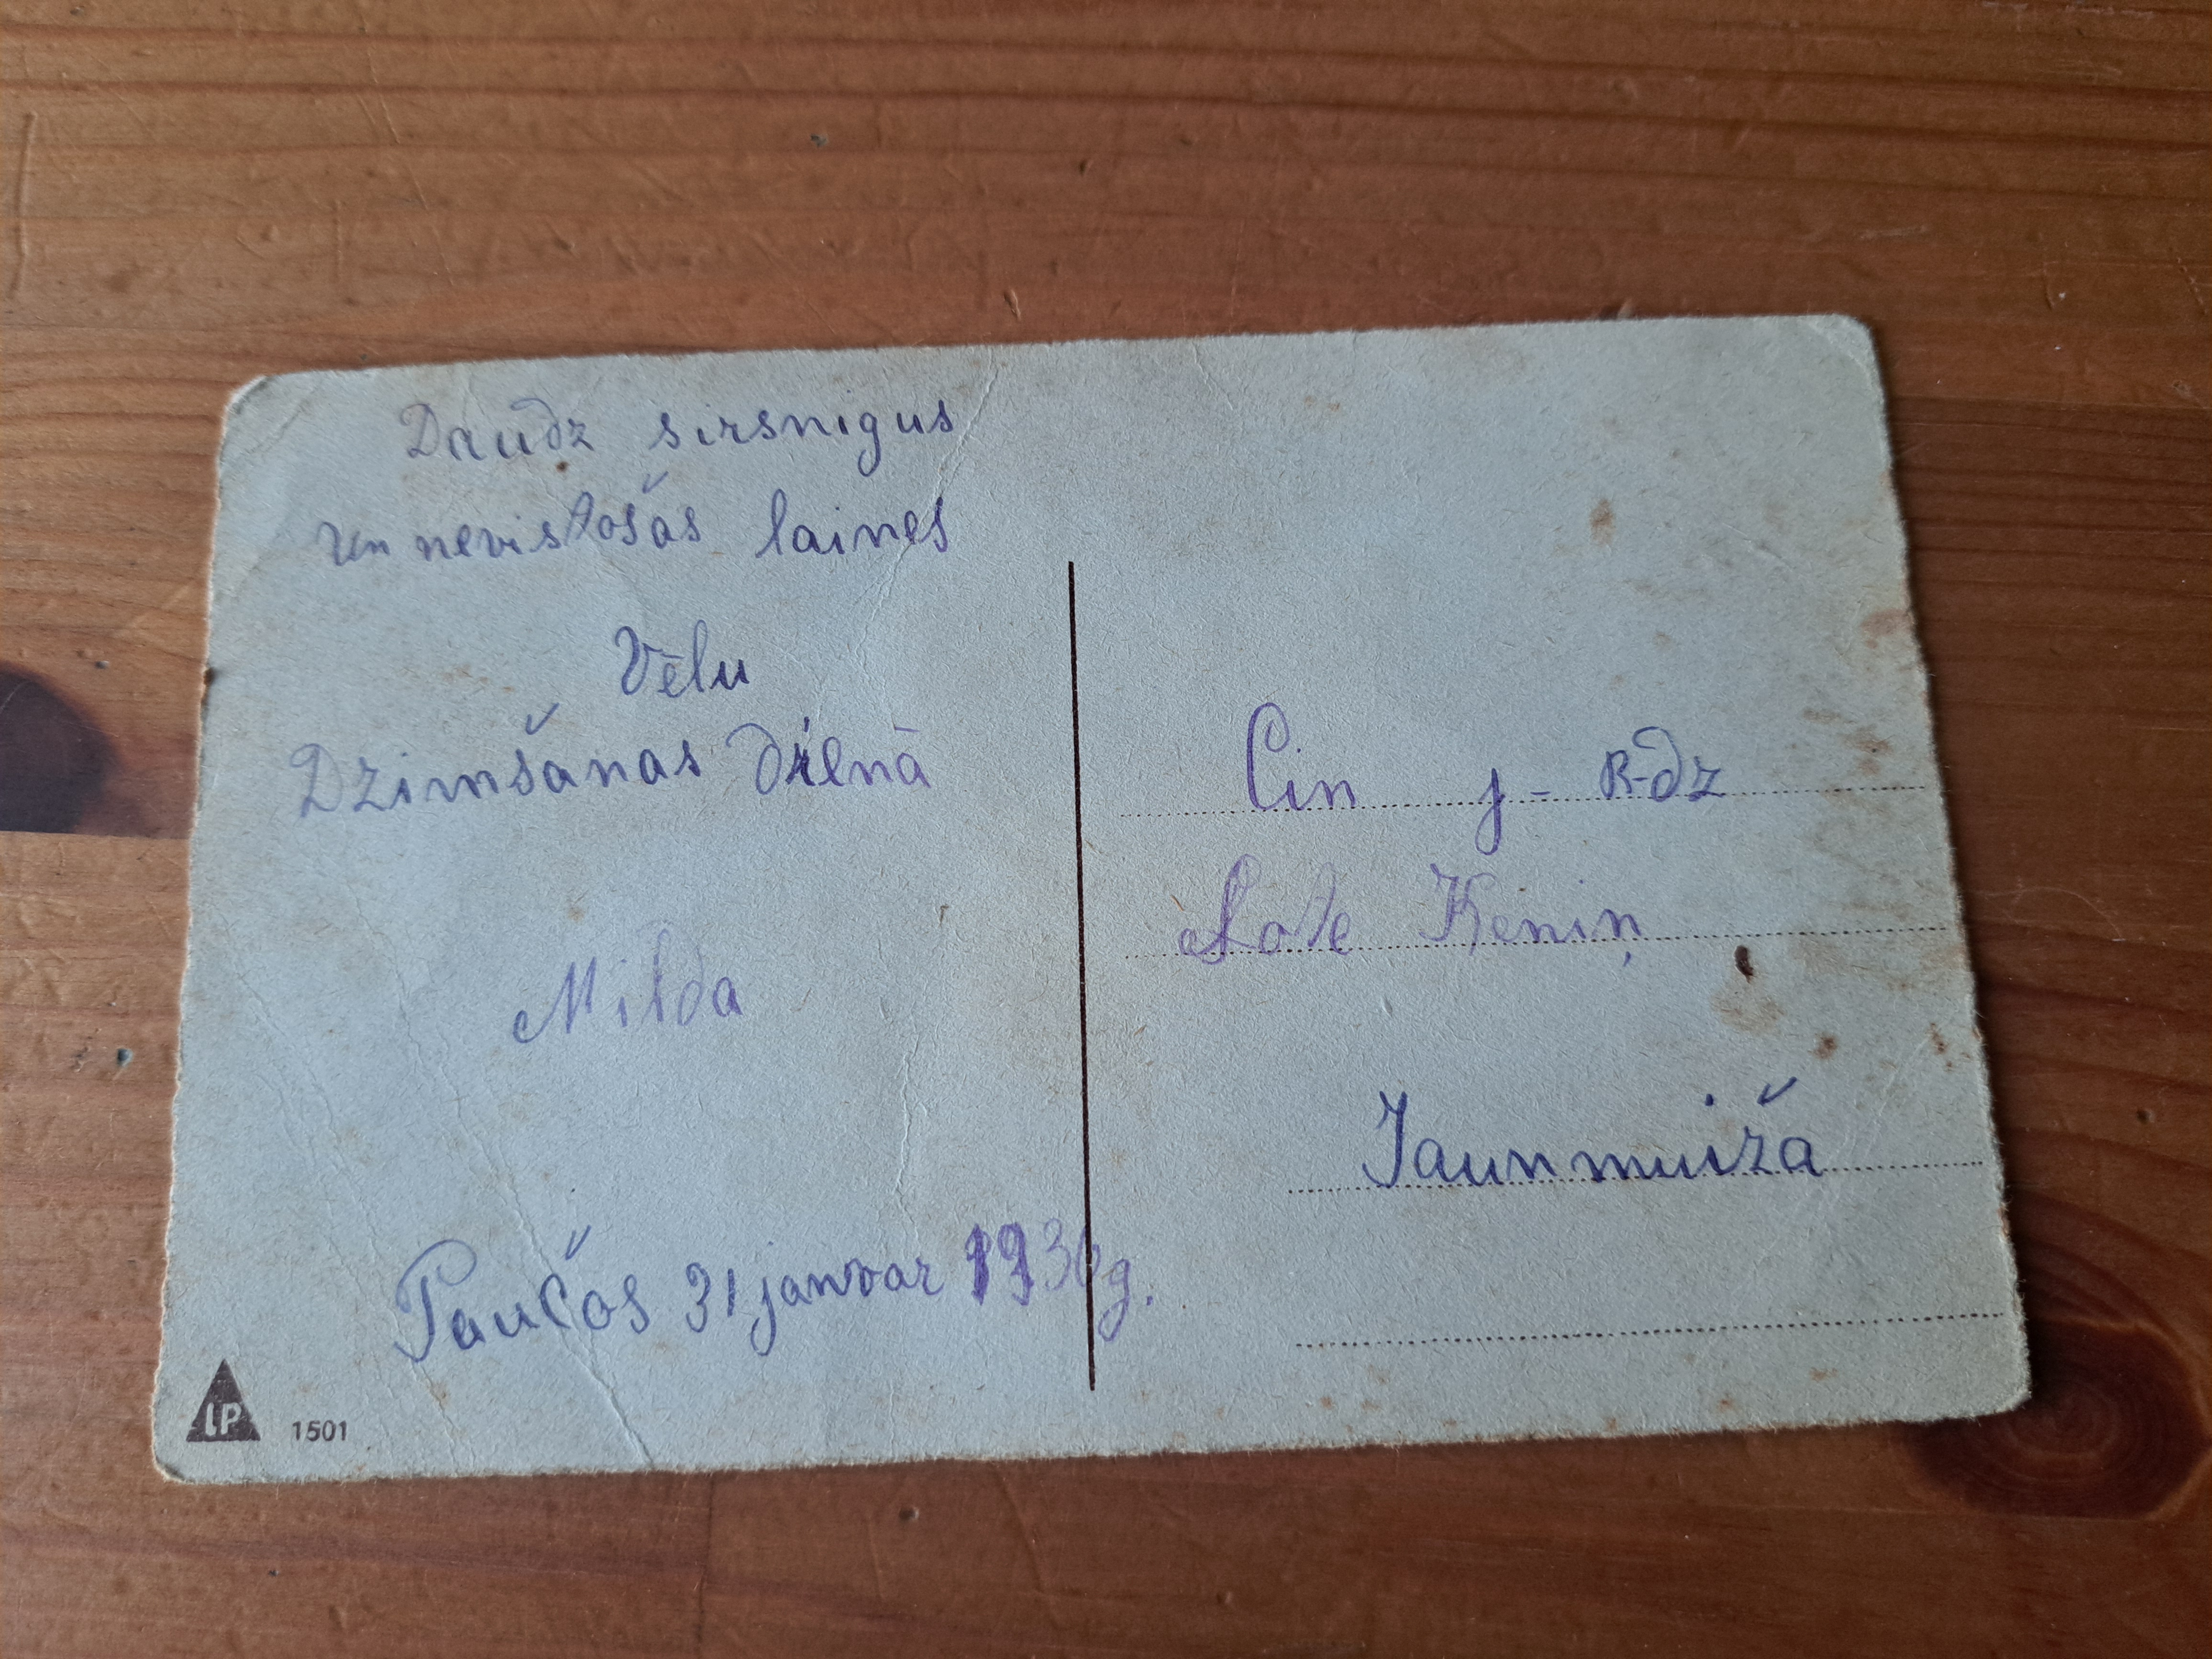 Daudz sirsnigus
un nevistošas laines
Vēlu
Dzimšanas dienā
Milda
Paučos 31 janvar 1936g.
LP 1501
Cin j-R-dz
Lote Keniņ
Jaunmuiža